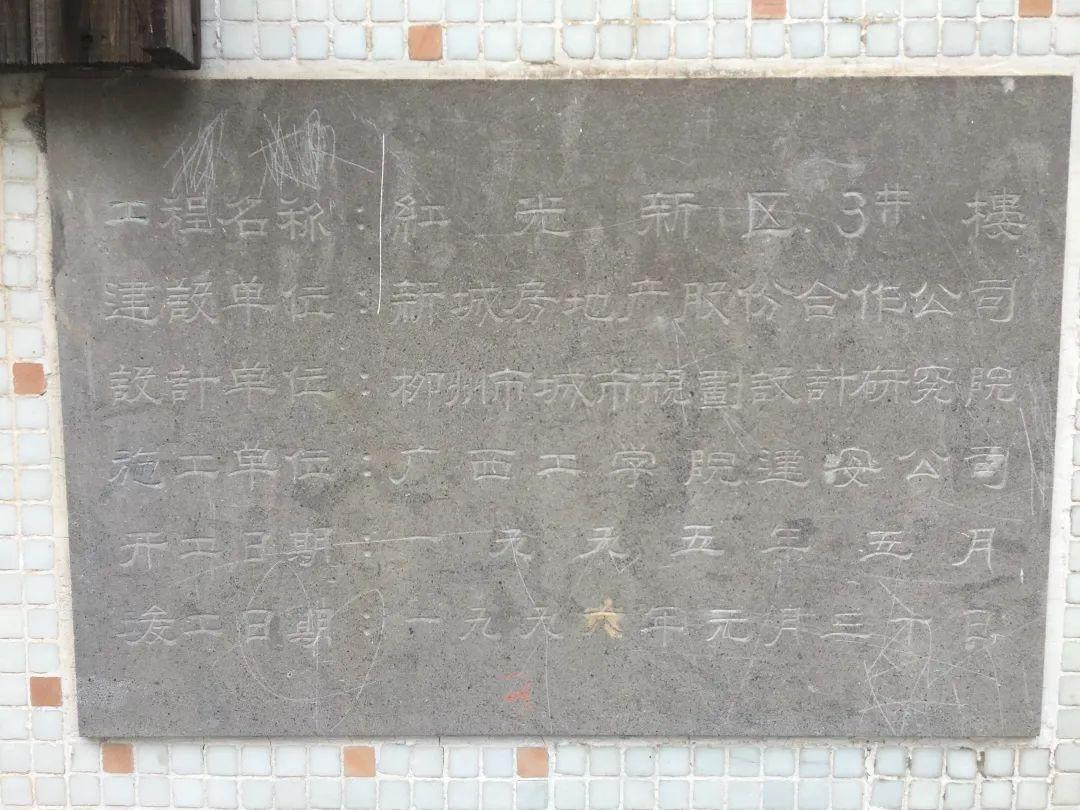 工程名称：紅光新区3#樓
建設单位：新城房地产股份合作公司
設計单位：柳州市城市規劃設計研究院
施工单位：广西工学院建安公司
开工日期：一九九五年五月
竣工日期：一九九六年元月三十日